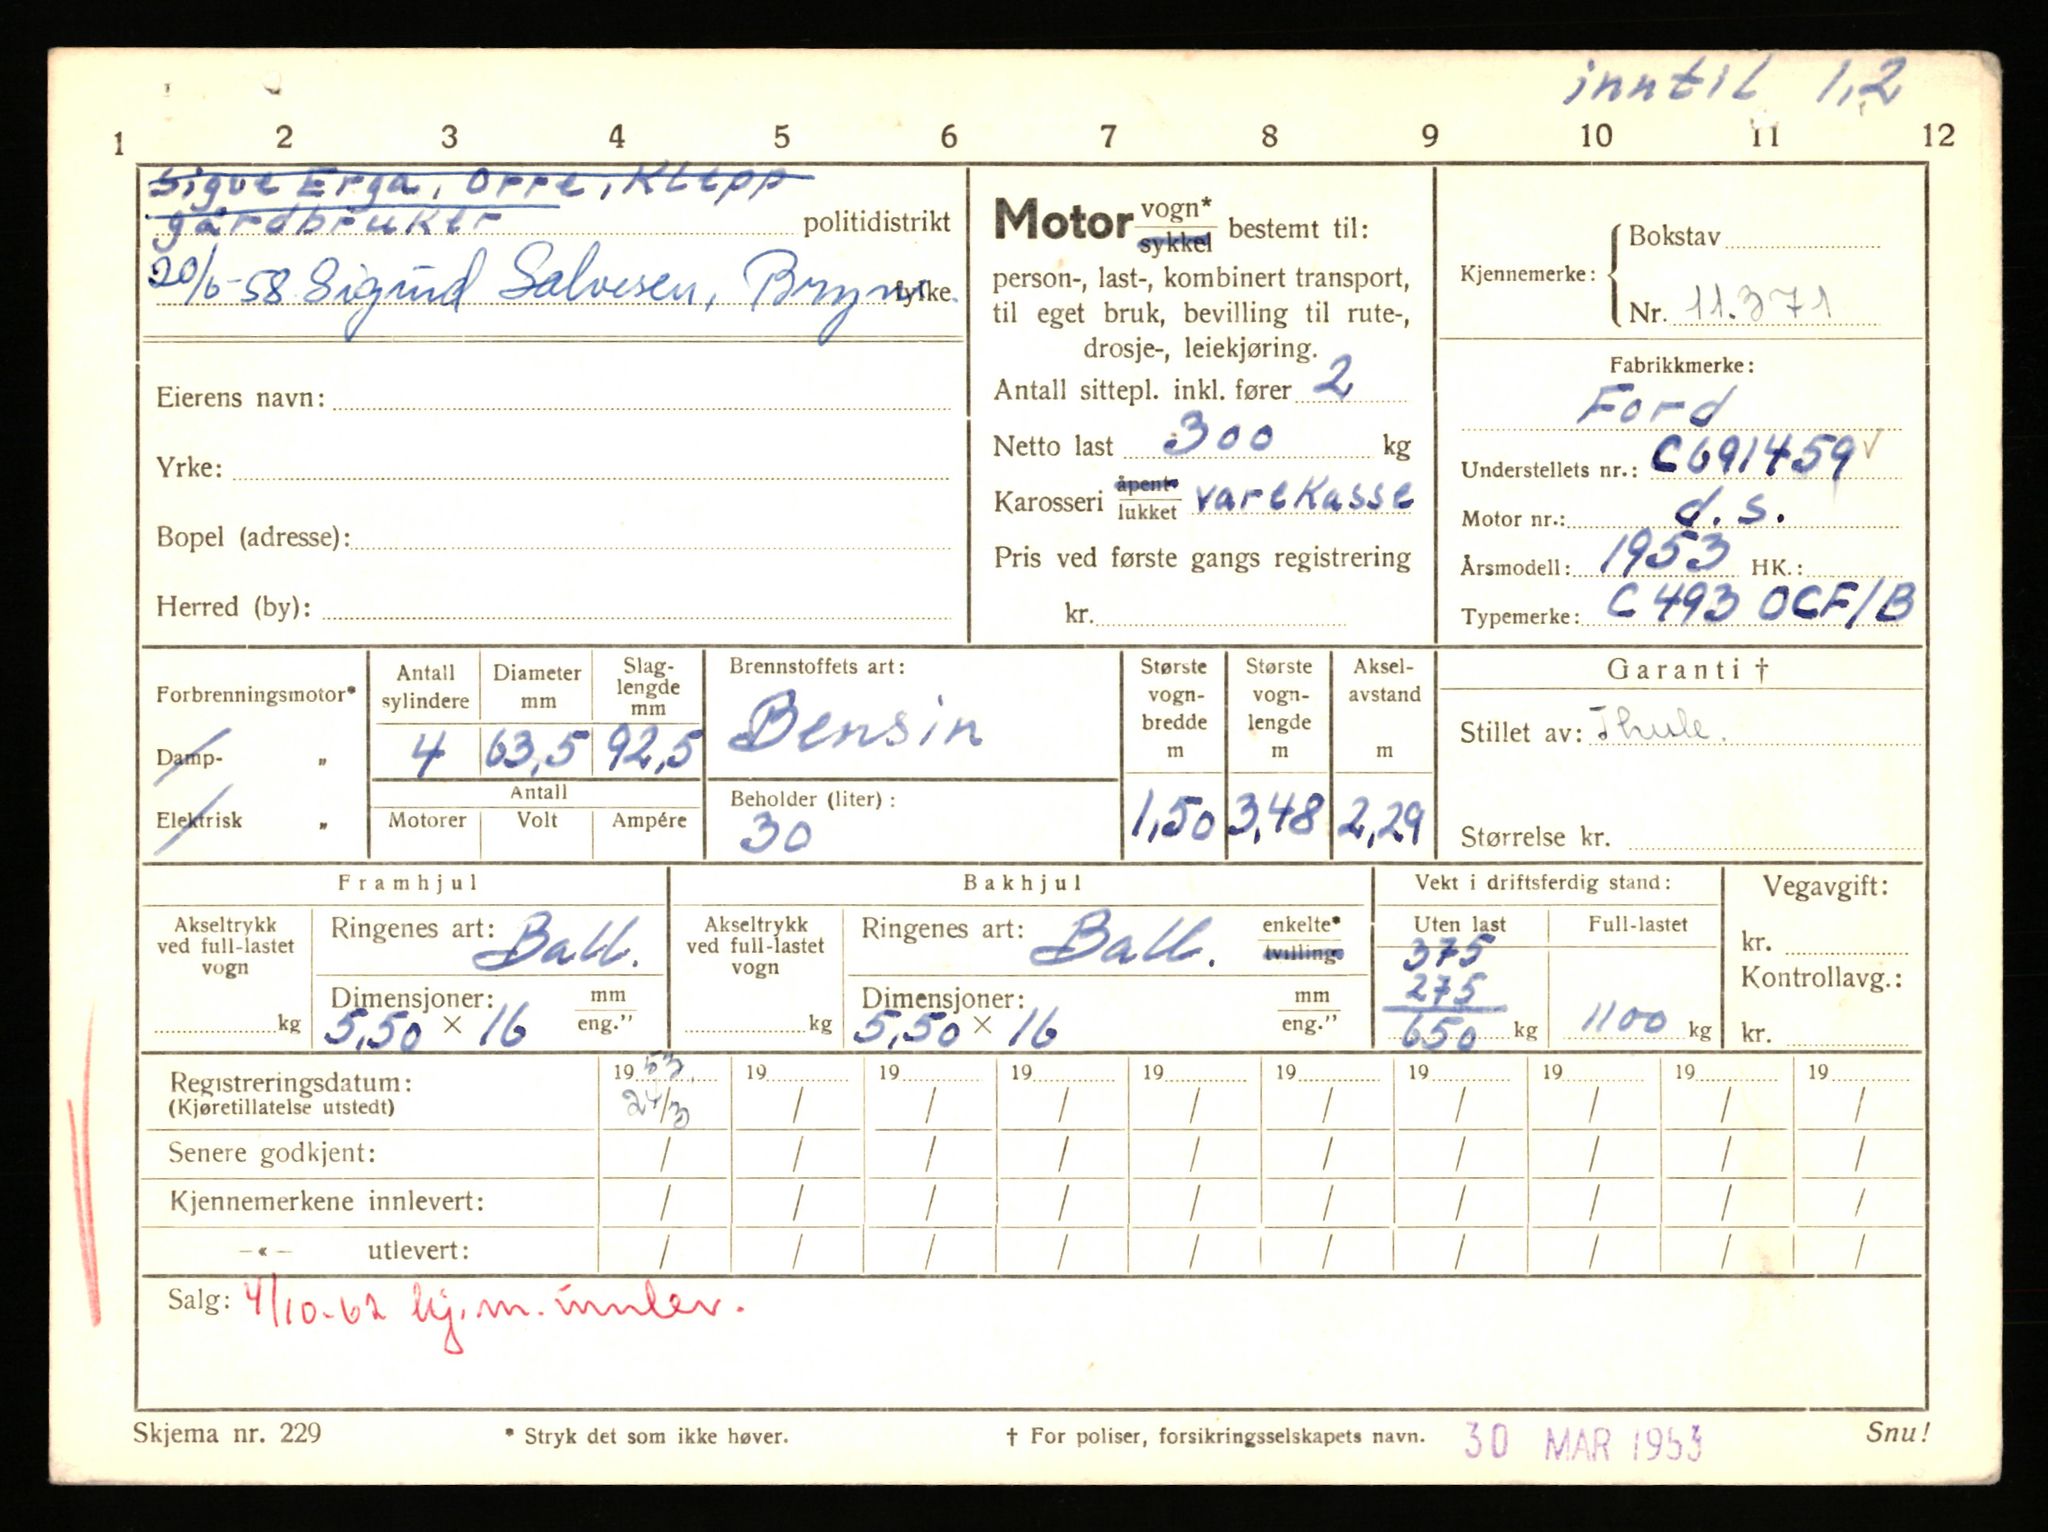 inntil 1,2
1 2 3 4 5 6 7 8 9 10 11 12
Sigve Erga, Orre, Klepp
gårdbruker politidistrikt
20/6-58 Sigurd Salvesen, Bryne. fylke.
Eierens navn:
Yrke:
Bopel (adresse):
Herred (by):
Motor vogn* sykkel bestemt til:
person-, last-, kombinert transport,
til eget bruk, bevilling til rute-,
drosje-, leiekjøring.
Antall sittepl. inkl. fører 2
Netto last 300 kg
Karosseri åpent* lukket varekasse
Pris ved første gangs registrering
kr.
Kjennemerke: Bokstav
Nr. 11.371
Fabrikkmerke:
Ford
Understellets nr.: C691459
Motor nr.: d.s.
Årsmodell: 1953 HK.:
Typemerke: C 493 OCF/B
Forbrenningsmotor*
Damp- „
Elektrisk „
Antall sylindere
4
Diameter mm
63,5
Slag-lengde mm
92,5
Antall
Motorer Volt Ampére
Brennstoffets art:
Bensin
Beholder (liter):
30
Største vogn-bredde m
1,50
Største vogn-lengde m
3,48
Aksel-avstand m
2,29
Garanti †
Stillet av: Thule.
Størrelse kr.
Framhjul
Akseltrykk ved full-lastet vogn
kg
Ringenes art: Ball.
Dimensjoner: mm eng."
5,50 × 16
Bakhjul
Akseltrykk ved full-lastet vogn
kg
Ringenes art: Ball. enkelte* tvilling*
Dimensjoner: mm eng."
5,50 × 16
Vekt i driftsferdig stand:
Uten last Full-lastet
375
275
650 kg 1100 kg
Vegavgift:
kr.
Kontrollavg.:
kr.
Registreringsdatum: 1953 19 19 19 19 19 19 19 19 19
(Kjøretillatelse utstedt) 24/3 / / / / / / / / /
Senere godkjent: / / / / / / / / / /
Kjennemerkene innlevert: / / / / / / / / / /
–«– utlevert: / / / / / / / / / /
Salg: 4/10-62 kj.m. innlev.
Skjema nr. 229 * Stryk det som ikke høver. † For poliser, forsikringsselskapets navn. 30 MAR 1953 Snu!